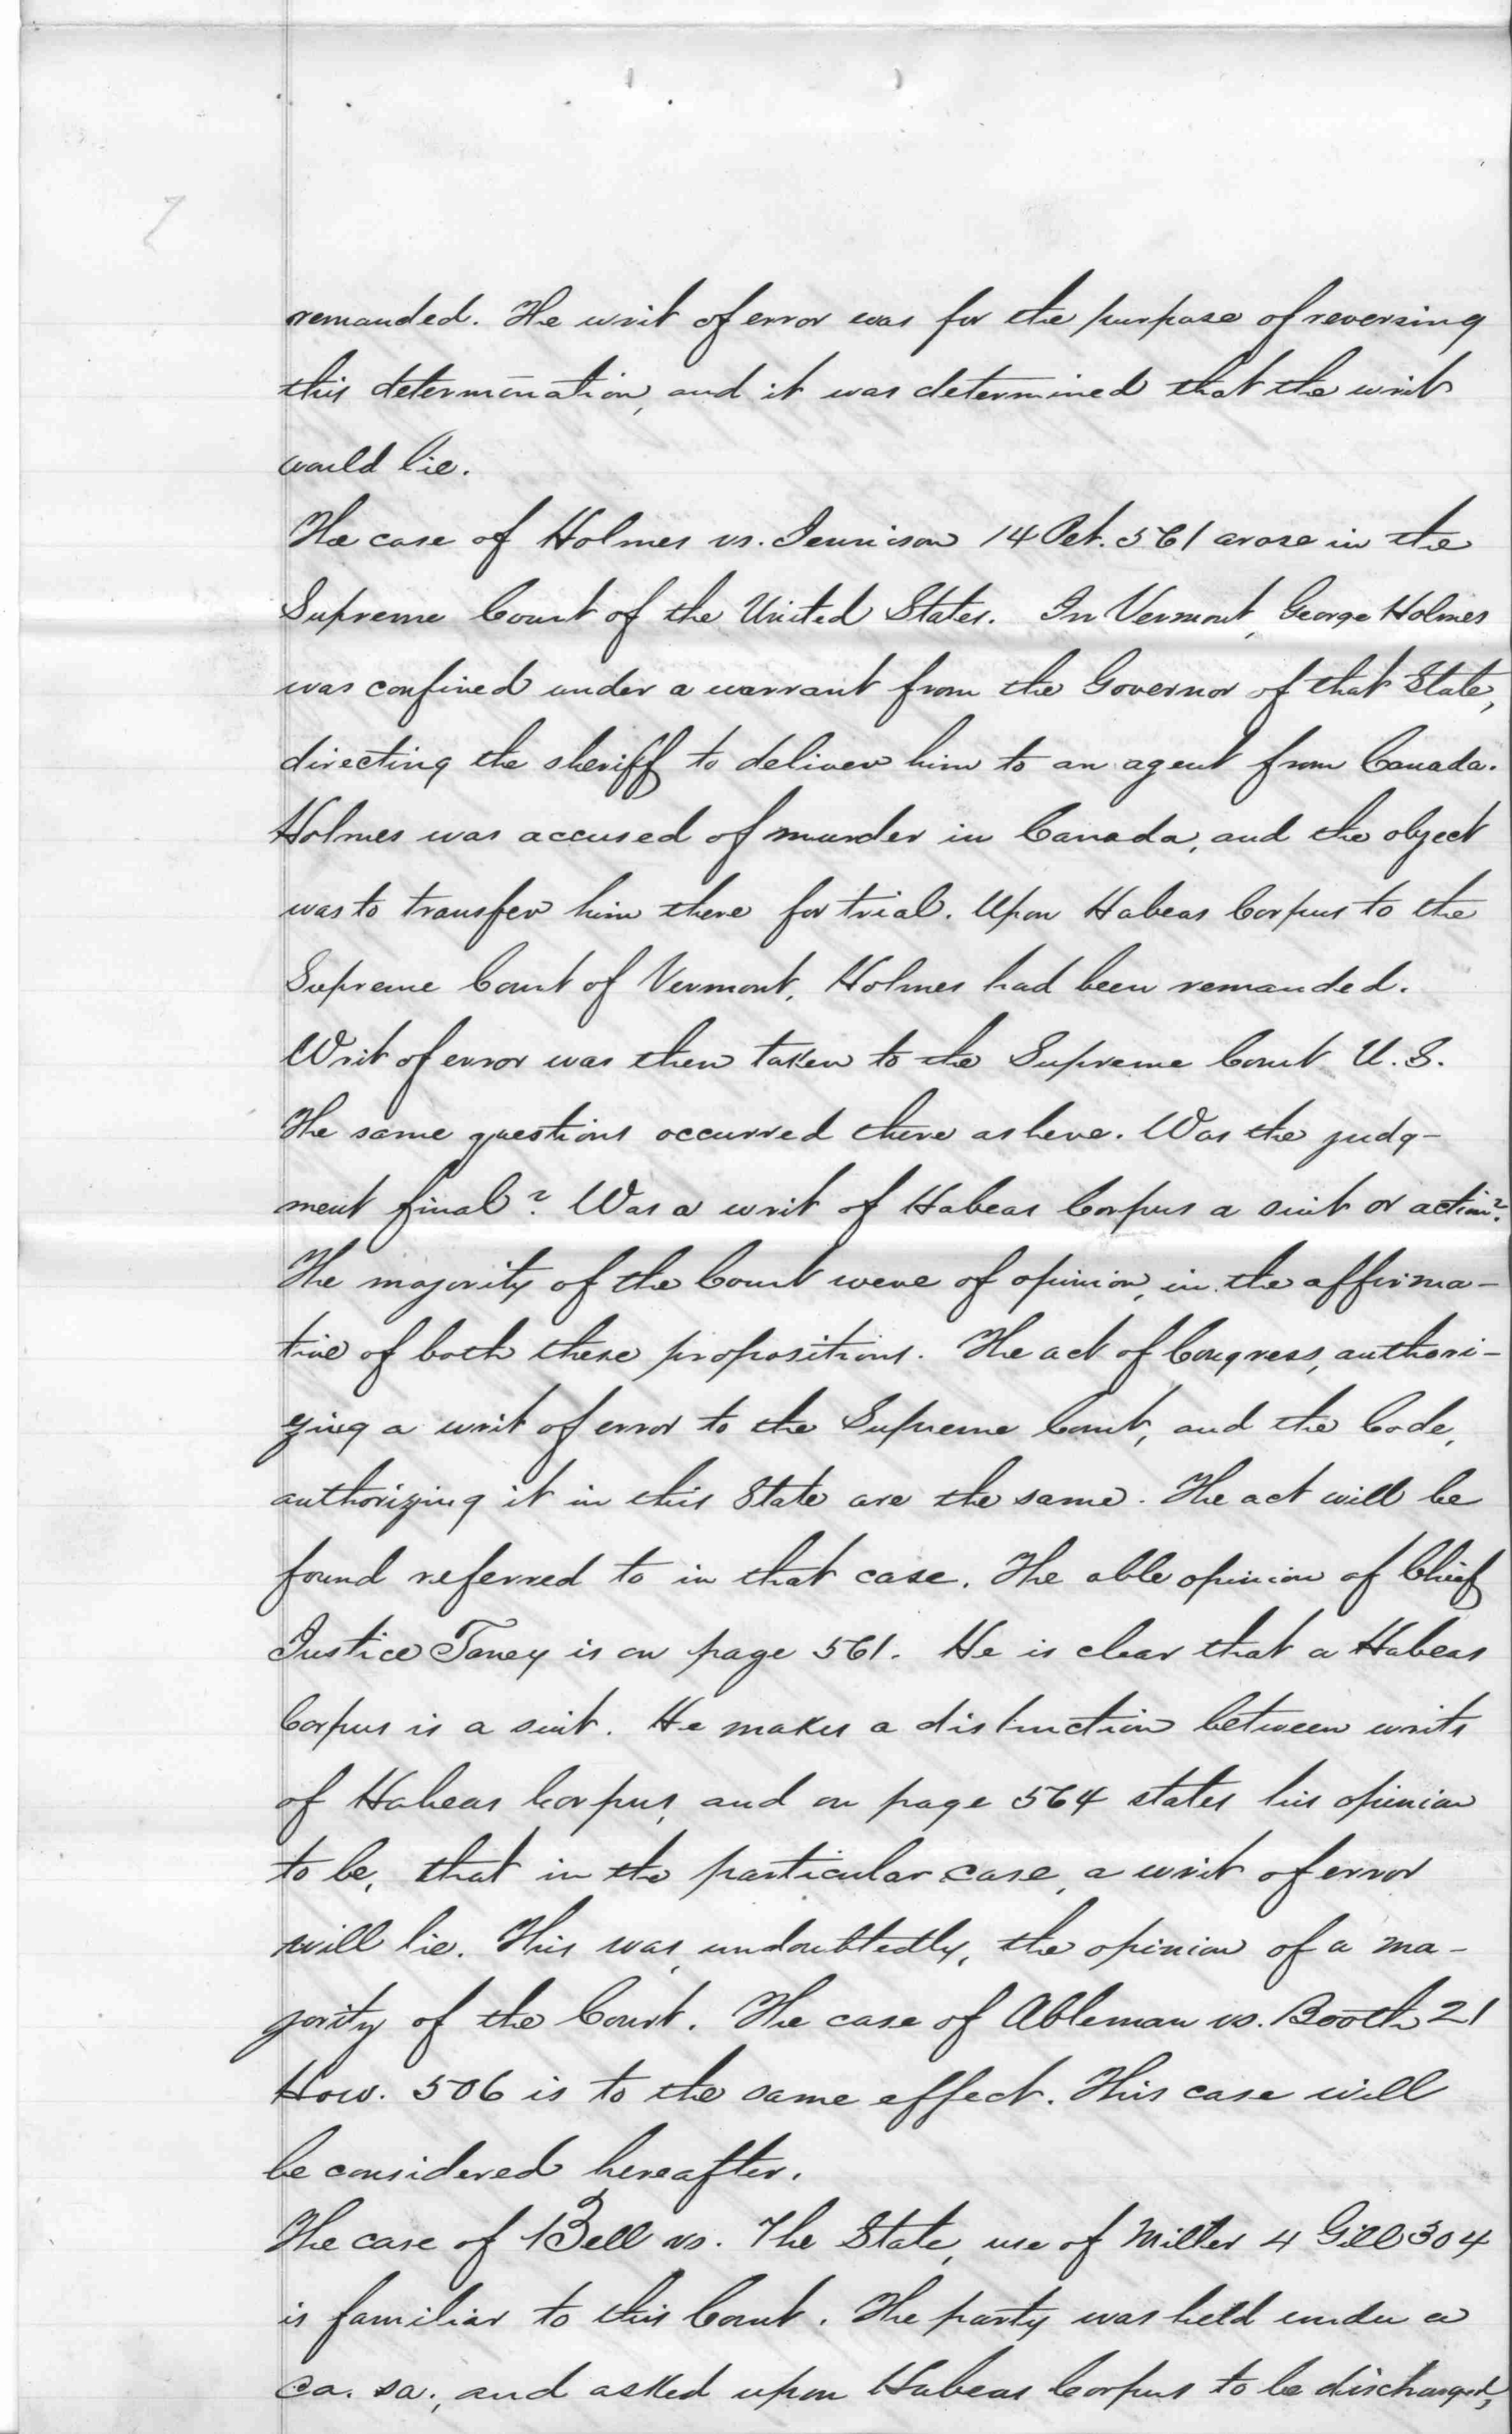 7
remanded. The writ of error was for the purpose of reversing
this determination, and it was determined that the writ
would lie.
The case of Holmes vs. Jennison 14 Pet. 561 arose in the
Supreme Court of the United States. In Vermont, George Holmes
was confined under a warrant from the Governor of that State,
directing the sheriff to deliver him to an agent from Canada.
Holmes was accused of murder in Canada, and the object
was to transfer him there for trial. Upon Habeas Corpus to the
Supreme Court of Vermont, Holmes had been remanded.
Writ of error was then taken to the Supreme Court U.S.
The same questions occurred there as here. Was the judg-
ment final? Was a writ of Habeas Corpus a suit or action?
The majority of the Court were of opinion, in the affirma-
tive of both these propositions. The act of Congress, authori-
zing a writ of error to the Supreme Court, and the Code,
authorizing it in this State are the same. The act will be
found referred to in that case. The able opinion of Chief
Justice Taney is on page 561. He is clear that a Habeas
Corpus is a suit. He makes a distinction between writs
of Habeas Corpus, and on page 564 states his opinion
to be, that in the particular case, a writ of error
will lie. This was, undoubtedly, the opinion of a ma-
jority of the Court. The case of Ableman vs. Booth 21
How. 506 is to the same effect. This case will
be considered hereafter.
The case of Bell vs. The State, use of Miller 4 Gill 304
is familiar to this Court. The party was held under a
ca. sa., and asked upon Habeas Corpus to be discharged,